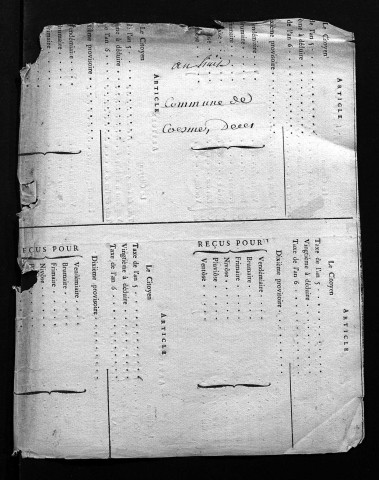 an huit
Commune de
Coesmes, Deces
ARTICLE
Le Citoyen
Taxe de l'an 5
Vingtième à déduire
Taxe de l'an 6
Dixième provisoire
Vendémiaire
Brumaire
Frimaire
ARTICLE
Le Citoyen
Taxe de l'an 5
Vingtième à déduire
Taxe de l'an 6
Dixième provisoire
Vendémiaire
Brumaire
Frimaire
ARTICLE
Le Citoyen
Taxe de l'an 5
Vingtième à déduire
Taxe de l'an 6
Dixième provisoire
REÇUS POUR
Vendémiaire
Brumaire
Frimaire
Nivôse
ARTICLE
Le Citoyen
Taxe de l'an 5
Vingtième à déduire
Taxe de l'an 6
Dixième provisoire
REÇUS POUR
Vendémiaire
Brumaire
Frimaire
Nivôse
Pluviôse
Ventôse